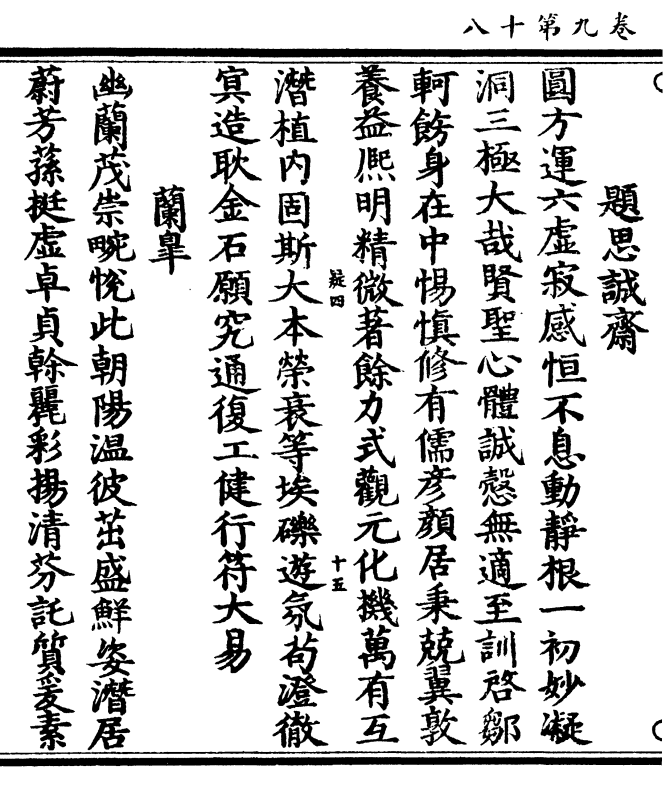 卷九第十八
題思誠齋
圓方運六虛寂感恒不息動靜根一初妙凝
洞三極大哉賢聖心體誠慤無適至訓啓鄒
軻飭身在中惕慎修有儒彦顏居秉兢翼敦
養益熈明精微著餘力式觀元化機萬有互
潛植内固斯大本榮衰等埃礫遊氛茍澄徹
疑四
十五
㝠造耿金石願究通復工健行符大易
蘭臯
幽蘭茂崇畹悅此朝陽温彼茁盛鮮姿潛居
蔚芳蓀挺虛卓貞榦麗彩揚清芬託質爰素